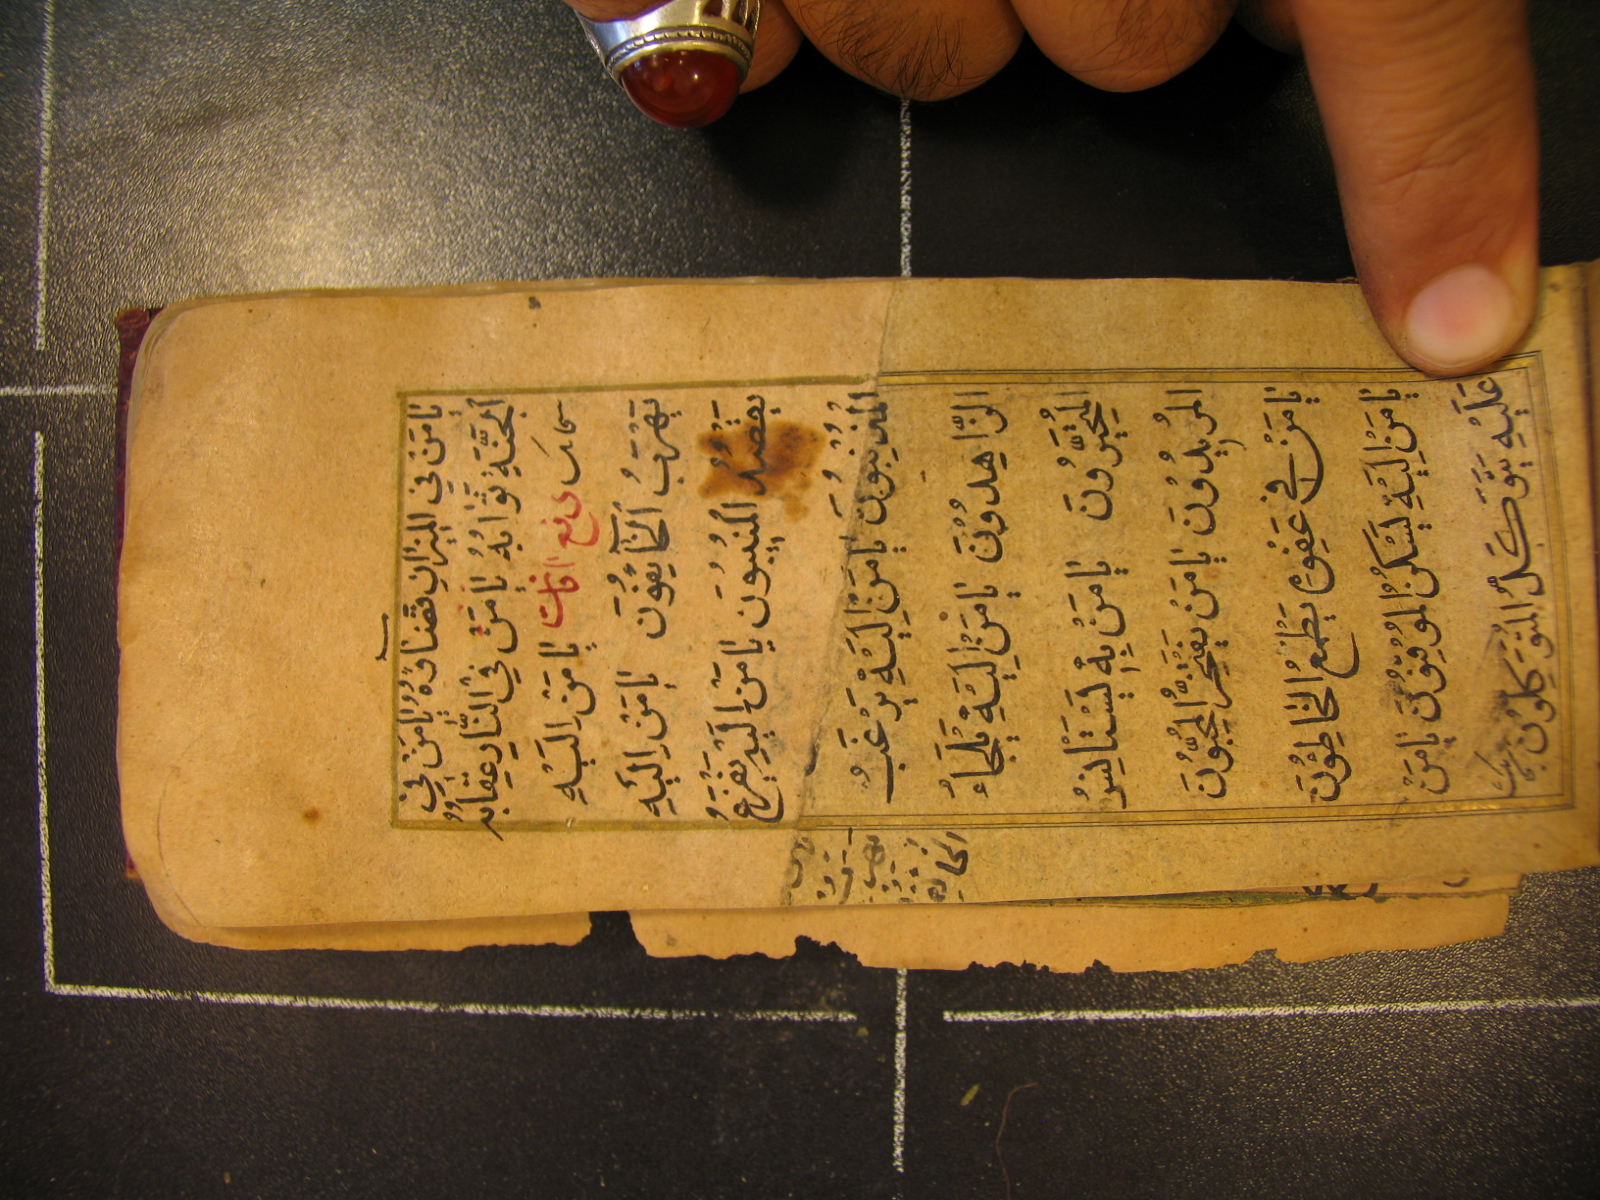 يَا مَنْ فِي الْمِيزَانِ قَضَاؤُهُ يَا مَنْ فِي
الْجَنَّةِ ثَوَابُهُ يَا مَنْ فِي النَّارِ عِقَابُهُ
سبحانك دفع افات يَا مَنْ اِلَيْهِ
يَهْرَبُ الْخَائِفُونَ يَا مَنْ اِلَيْهِ
يَقْصُدُ الْمُنِيبُونَ يَا مَنْ اِلَيْهِ يَفْزَعُ
الْمُذْنِبُونَ يَا مَنْ اِلَيْهِ يَرْغَبُ
الزَّاهِدُونَ يَا مَنْ اِلَيْهِ يَلْجَاءُ
الْمُتَحَيِّرُونَ يَا مَنْ بِهِ يَسْتَانِسُ
الْمُرِيدُونَ يَا مَنْ يَفْتَخِرُ الْمُحِبُّونَ
يَا مَنْ فِي عَفْوِهِ يَطْمَعُ الْخَاطِئُونَ
يَا مَنْ اِلَيْهِ يَسْكُنُ الْمُوقِنُونَ يَا مَنْ
عَلَيْهِ يَتَوَكَّلُ الْمُتَوَكِّلُونَ